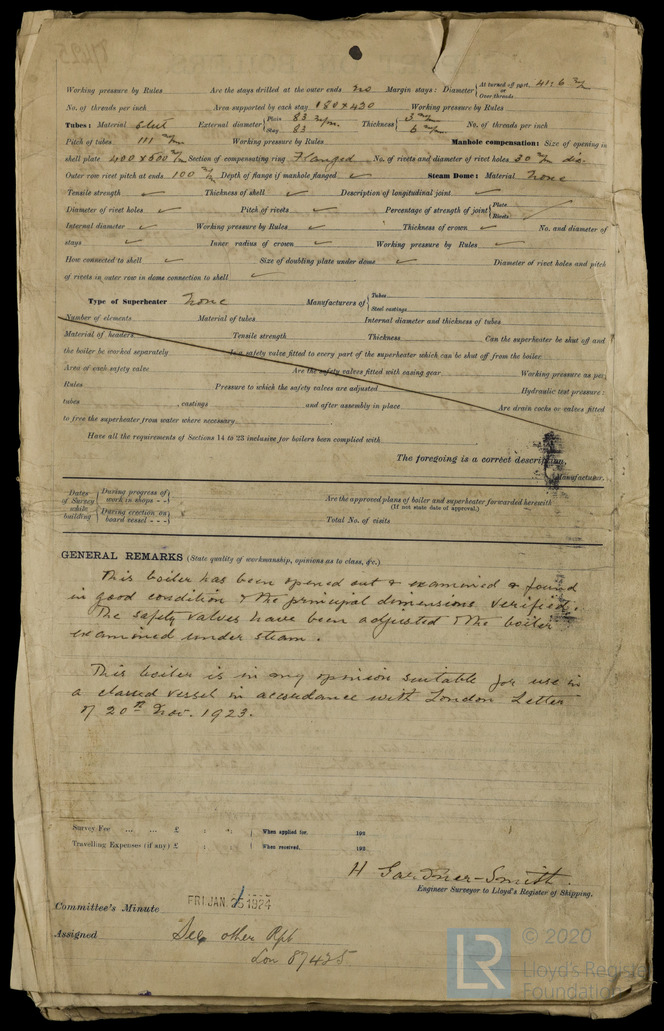 Working pressure by Rules Are the stays drilled at the outer ends no Margin stays: Diameter { At turned off part, or Over threads
No. of threads per inch Area supported by each stay 180 x 420 Working pressure by Rules
Tubes: Material Steel External diameter { Plain 83 m/m. Stay 83 Thickness { 3 m/m 6 m/m No. of threads per inch
Pitch of tubes 111 m/m. Working pressure by Rules Manhole compensation: Size of opening in
shell plate 400 x 500 m/m Section of compensating ring Flanged No. of rivets and diameter of rivet holes 30 m/m dia.
Outer row rivet pitch at ends 100 m/m Depth of flange if manhole flanged ✓ Steam Dome: Material None
Tensile strength ✓ Thickness of shell ✓ Description of longitudinal joint ✓
Diameter of rivet holes ✓ Pitch of rivets ✓ Percentage of strength of joint { Plate Rivets
Internal diameter ✓ Working pressure by Rules ✓ Thickness of crown ✓ No. and diameter of
stays ✓ Inner radius of crown ✓ Working pressure by Rules ✓
How connected to shell ✓ Size of doubling plate under dome ✓ Diameter of rivet holes and pitch
of rivets in outer row in dome connection to shell ✓
Type of Superheater None Manufacturers of { Tubes Steel castings
Number of elements Material of tubes Internal diameter and thickness of tubes
Material of headers Tensile strength Thickness Can the superheater be shut off and
the boiler be worked separately Is a safety valve fitted to every part of the superheater which can be shut off from the boiler
Area of each safety valve Are the safety valves fitted with easing gear Working pressure as per
Rules Pressure to which the safety valves are adjusted Hydraulic test pressure:
tubes , castings and after assembly in place Are drain cocks or valves fitted
to free the superheater from water where necessary
Have all the requirements of Sections 14 to 23 inclusive for boilers been complied with
The foregoing is a correct description,
Manufacturer.
Dates of Survey while building { During progress of work in shops - - } Are the approved plans of boiler and superheater forwarded herewith
(If not state date of approval.)
{ During erection on board vessel - - - } Total No. of visits
GENERAL REMARKS (State quality of workmanship, opinions as to class, &c.)
This boiler has been opened out & examined & found
in good condition & the principal dimensions verified.
The safety valves have been adjusted & the boiler
examined under steam.
This boiler is in my opinion suitable for use in
a classed vessel in accordance with London Letter
of 20th Nov. 1923.
Survey Fee ... ... £ : : When applied for, 192
Travelling Expenses (if any) £ : : When received, 192
H Gardner-Smith.
Engineer Surveyor to Lloyd's Register of Shipping.
Committee's Minute FRI. JAN. 25 1924
Assigned See other Rpt
Lon 87425
LR © 2020
Lloyd's Register
Foundation